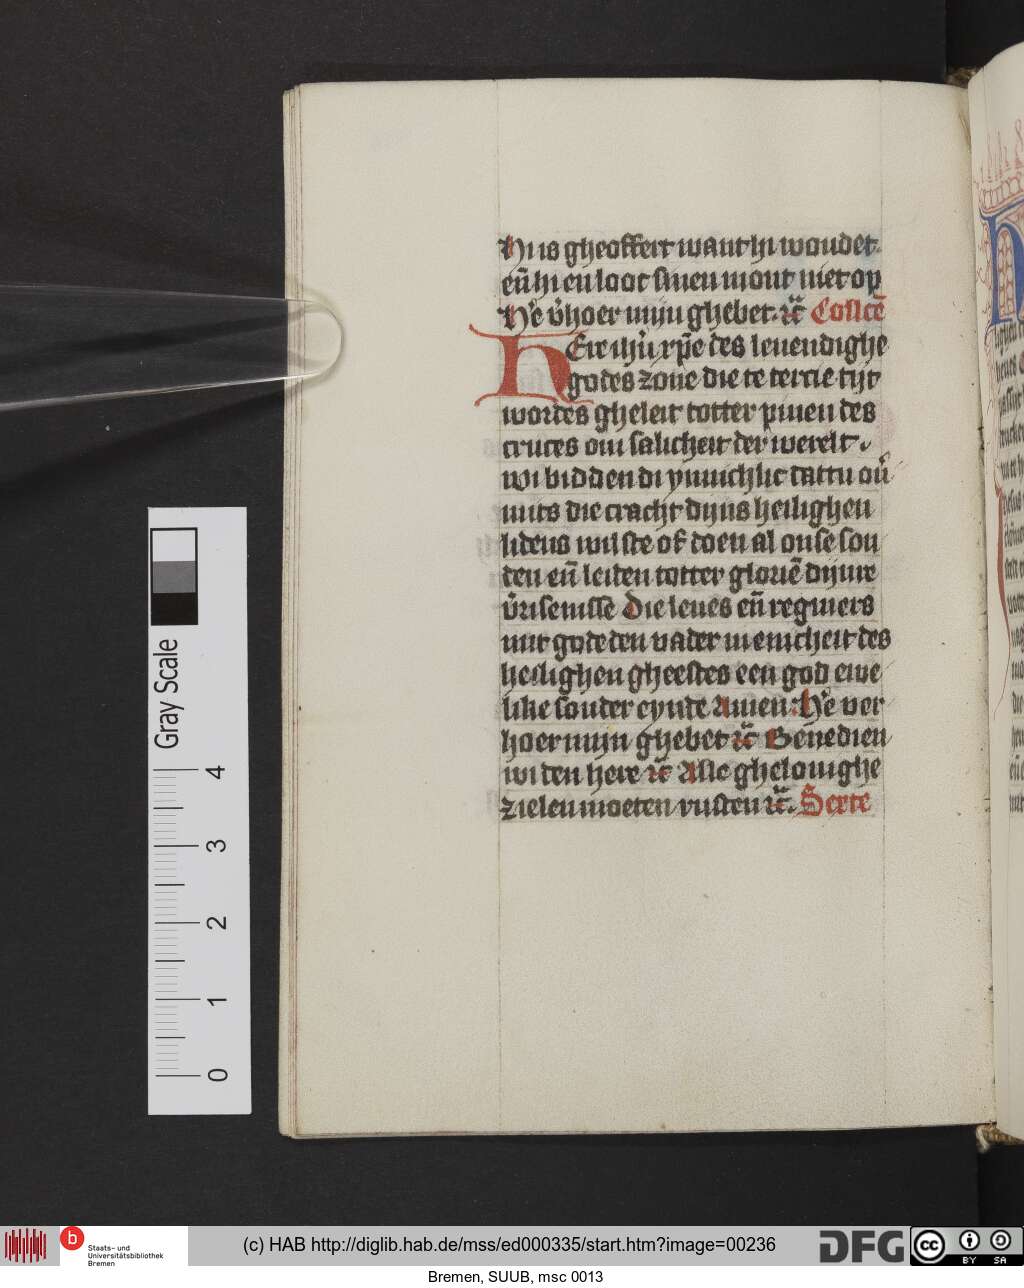 Hi is gheoffert want hi woudet
eñ hi en loot sinen mont niet op
He v̄hoer mijn ghebet. ⁊c̄ Collcē
HEre ihū xp̄e des leuendighe
godes zone die te tercie tijt
wordes gheleit totter pinen des
cruces om salicheit der werelt.
wi bidden di ynnichlic dattu ou̅
mits die cracht dijns heilighen
lidens wilste of doen al onse son
den eñ leiden totter gloriē dijnre
v̄risenisse Die leues eñ regniers
mit gode den vader in enicheit des
heilighen gheestes een god ewe
like sonder eynde Amen. He ver
hoer mijn ghebet ⁊c̄ Benedien
wi den here ⁊c̄ Alle gheloiuighe
zielen moeten rusten ⁊c̄. Sexte
Gray Scale
4
3
2
1
0
b
Staats- und
Universitätsbibliothek
Bremen
(c) HAB http://diglib.hab.de/mss/ed000335/start.htm?image=00236
DFG
cc
BY SA
Bremen, SUUB, msc 0013